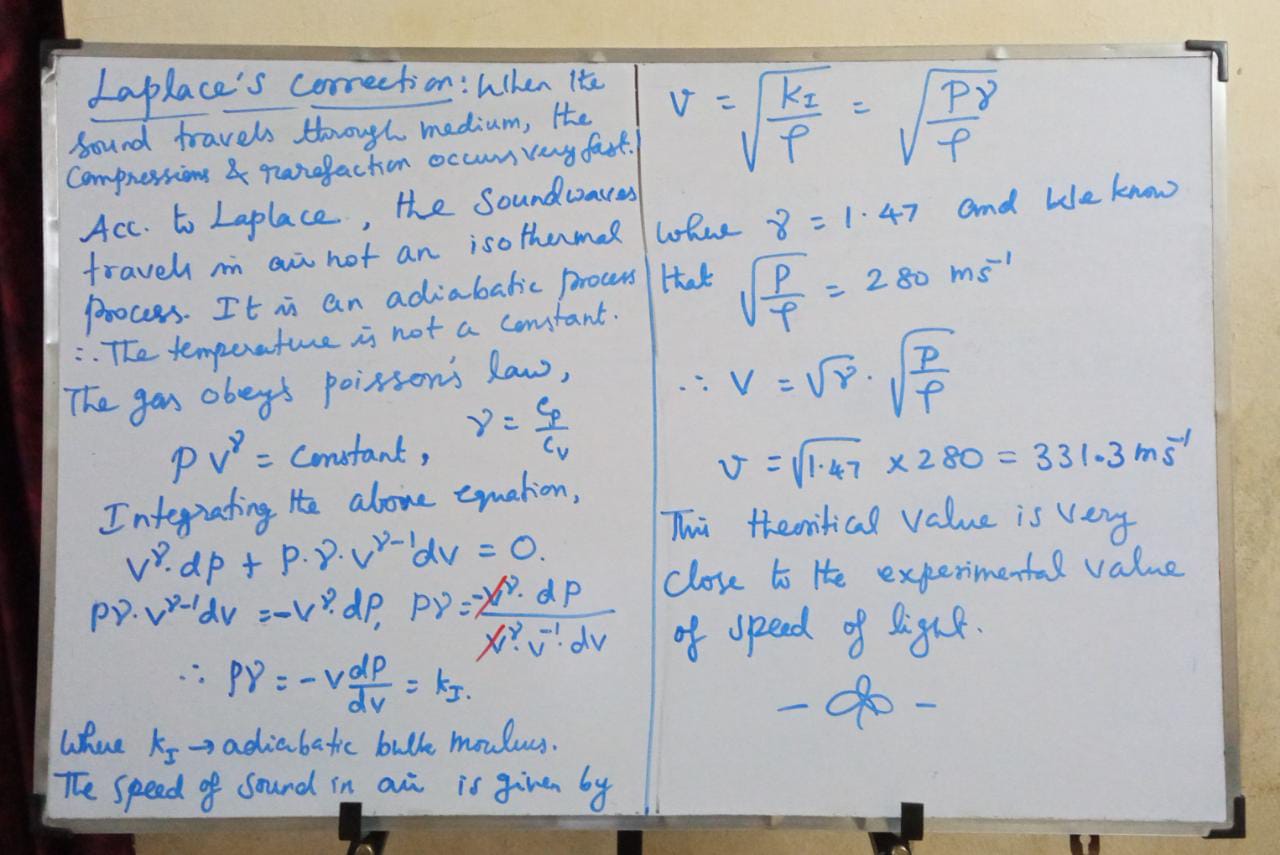 Laplace's Correction: When the
sound travels through medium, the
Compressions & rarefaction occurs very fast.
Acc. to Laplace, the Soundwaves
travels in air not an isothermal
process. It is an adiabatic process
∴ The temperature is not a constant.
The gas obeys poisson's law,
PV^γ = Constant, γ = Cp/Cv
Integrating the above equation,
V^γ.dp + P.γ.V^γ-1 dv = 0.
Pγ.V^γ-1 dv = -V^γ.dP, Pγ = -V^γ.dP / V^γ.V^-1.dv
∴ Pγ = -V dP/dv = kI.
Where kI → adiabatic bulk moulus.
The speed of Sound in air is given by
V = √(kI/ρ) = √(Pγ/ρ)
where γ = 1.47 and We know
that √(P/ρ) = 280 ms^-1
∴ V = √γ . √(P/ρ)
v = √1.47 x 280 = 331.3 ms^-1
This theoritical value is very
close to the experimental value
of speed of light.